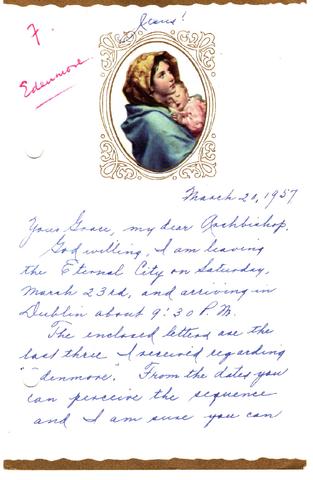 Jesus!
F.
Edenmore
March 20, 1957
Your Grace, my dear Archbishop,
God willing, I am leaving
the Eternal City on Saturday,
March 23rd, and arriving in
Dublin about 9:30 P.M.
The enclosed letters are the
last three I received regarding
"Edenmore." From the dates you
can perceive the sequence
and I am sure you can